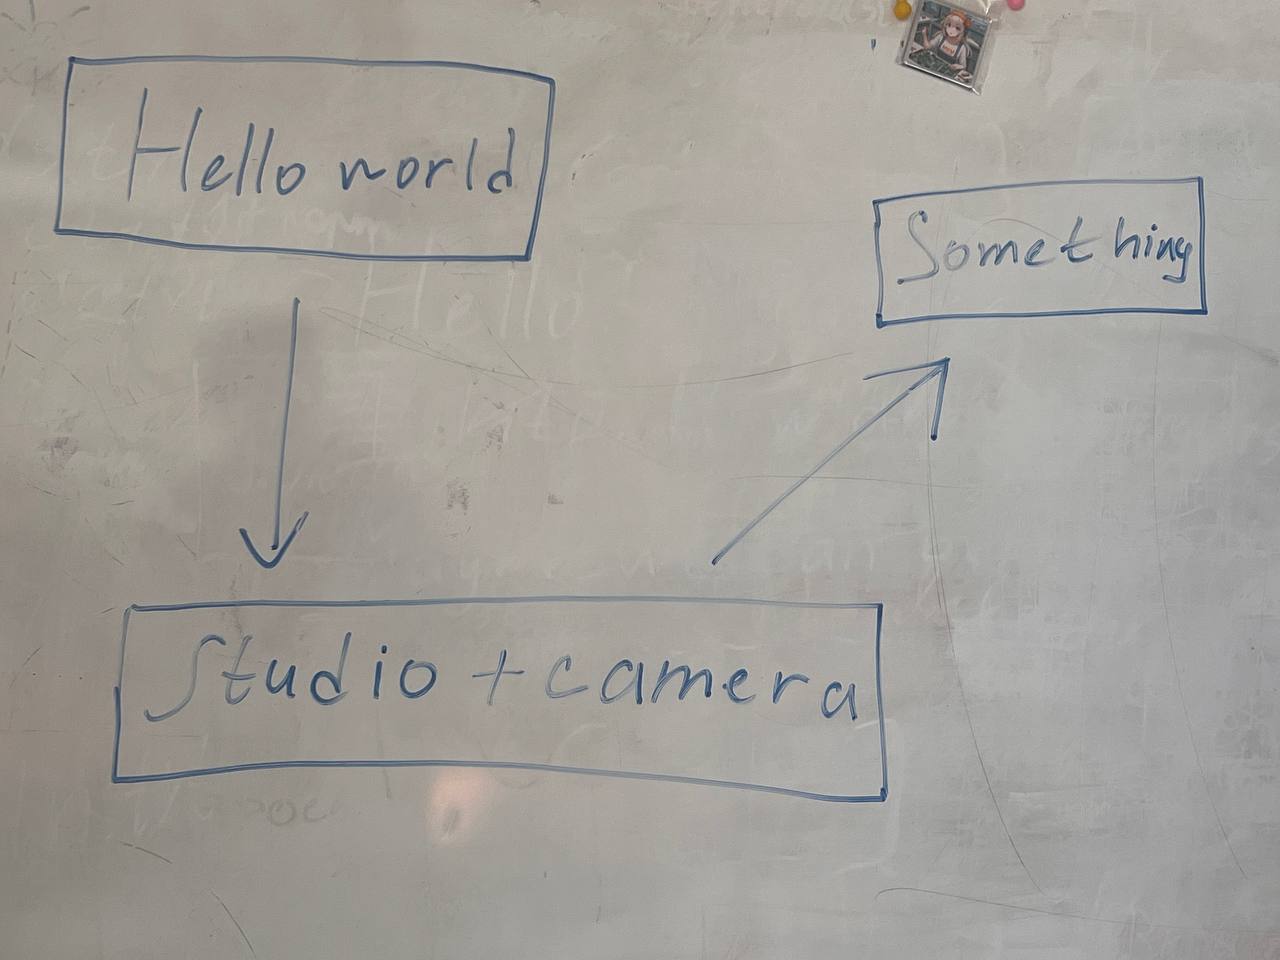 Hello world
Something
Studio + camera
Hello